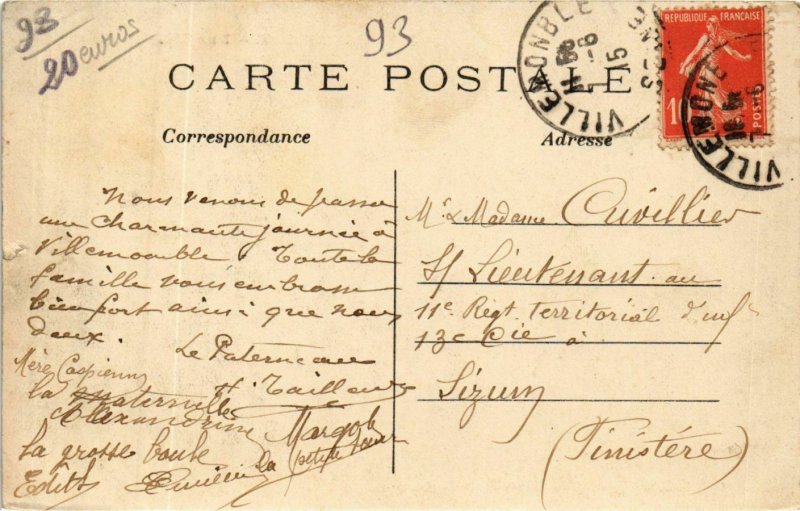 93
20 euros
93
CARTE POSTALE
VILLEMOMBLE
15
REPUBLIQUE FRANÇAISE
POSTES
Correspondance
Adresse
Nous venons de passer
une charmante journée à
Villemomble. Toute la
famille vous embrasse
bien fort ainsi que nous
deux.
Le Paterneau
H. Tailleur
Mère Caspienne
la maternelle
Alexandrine
Margot
la petite sœur
la grosse boule
Edith
Mr & Madame Cuvillier
S/ Lieutenant au
11e Régt Territorial d'Infie
13e Cie à
Sizun
(Finistère)